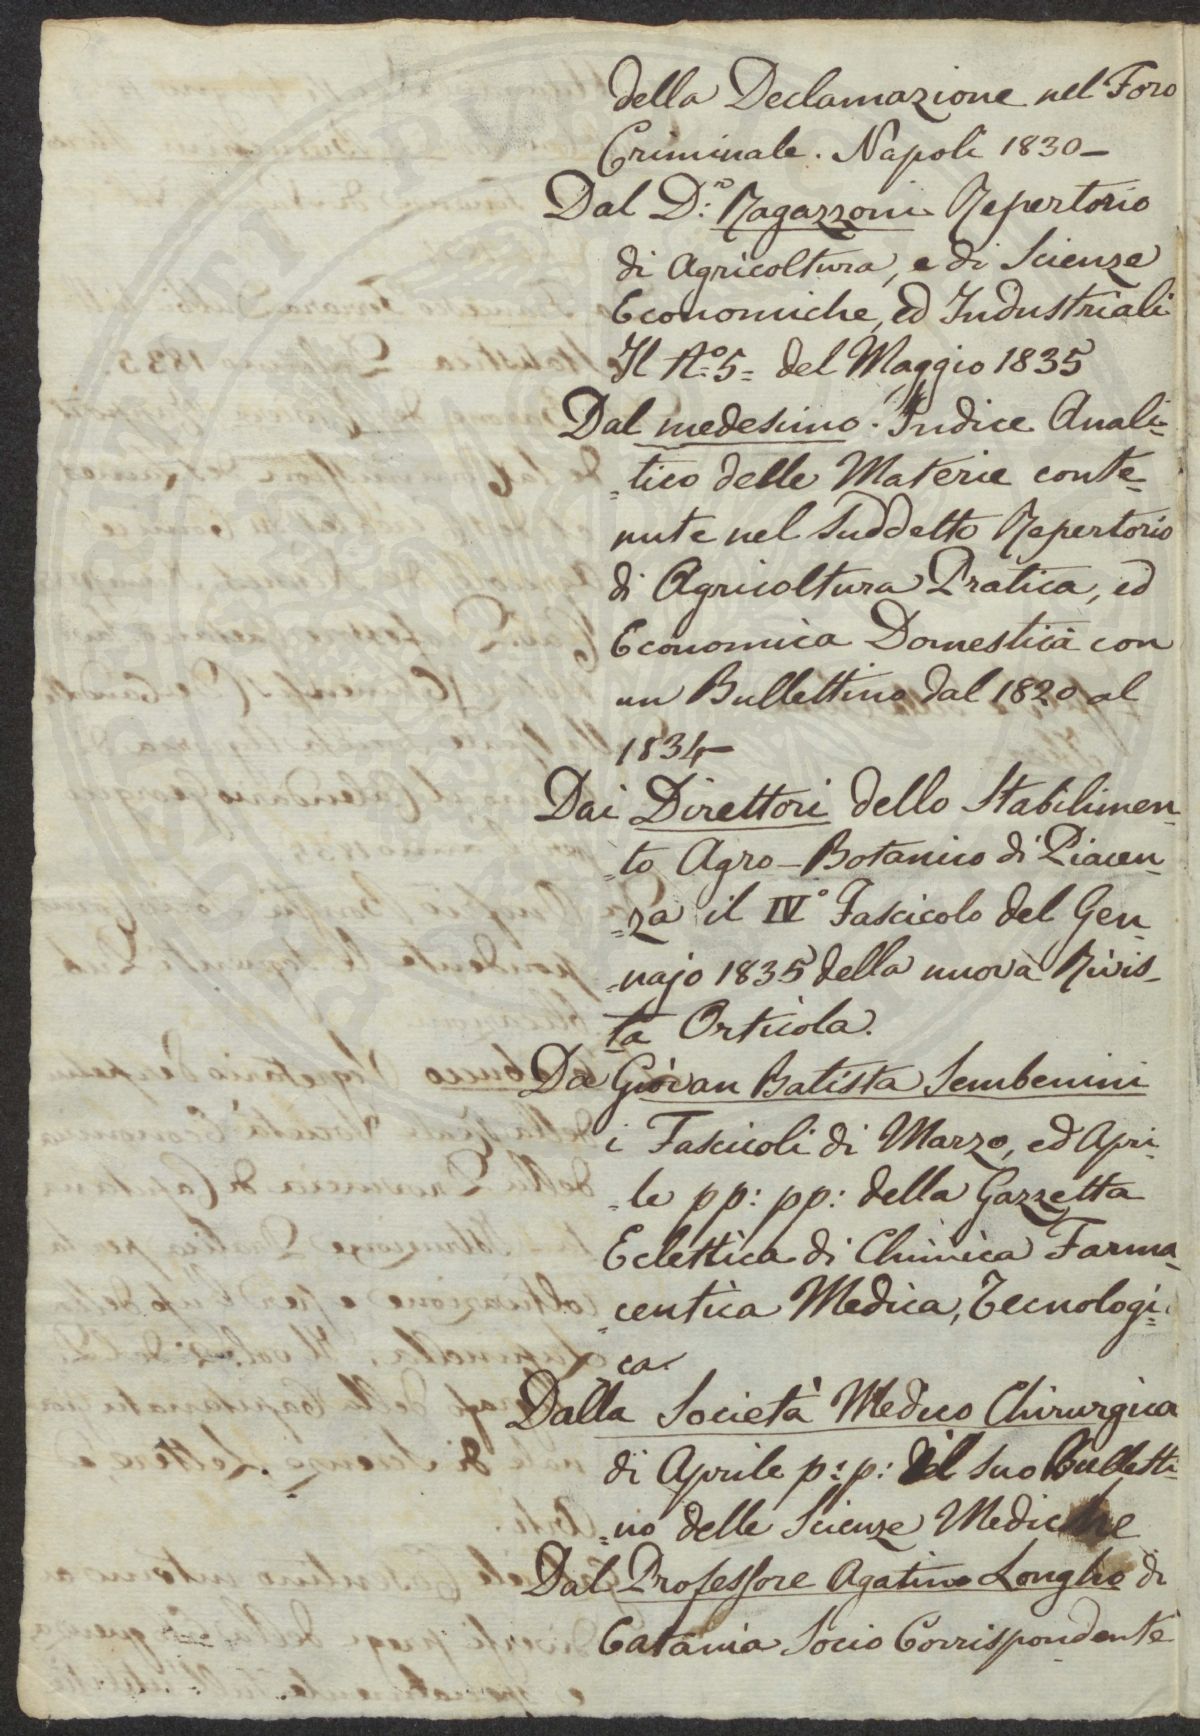 della Declamazione nel Foro
Criminale. Napoli 1830_
Dal D.r Ragazzoni Repertorio
di Agricoltura, e di Scienze
Economiche, ed Industriali
Il N.o 5= del Maggio 1835
Dal medesimo. Indice Anali=
=tico delle Materie conte=
nute nel suddetto Repertorio
di Agricoltura Pratica, ed
Economica Domestica con
un Bullettino dal 1820 al
1834_
Dai Direttori dello Stabilimen=
=to Agro-Botanico di Piacen=
=za il IV.o Fascicolo del Gen=
=najo 1835 della nuova Rivis=
ta Orticola.
Da Giovan Batista Sembenini
i Fascicoli di Marzo, ed Apri=
=le pp: pp: della Gazzetta
Eclettica di Chimica Farma=
=ceutica Medica, Tecnologi=
ca.
Dalla Società Medico Chirurgica
di Aprile p:p: il suo Bulletti=
=no delle Scienze Mediche
Dal Professore Agatino Longho di
Catania Socio Corrispondente